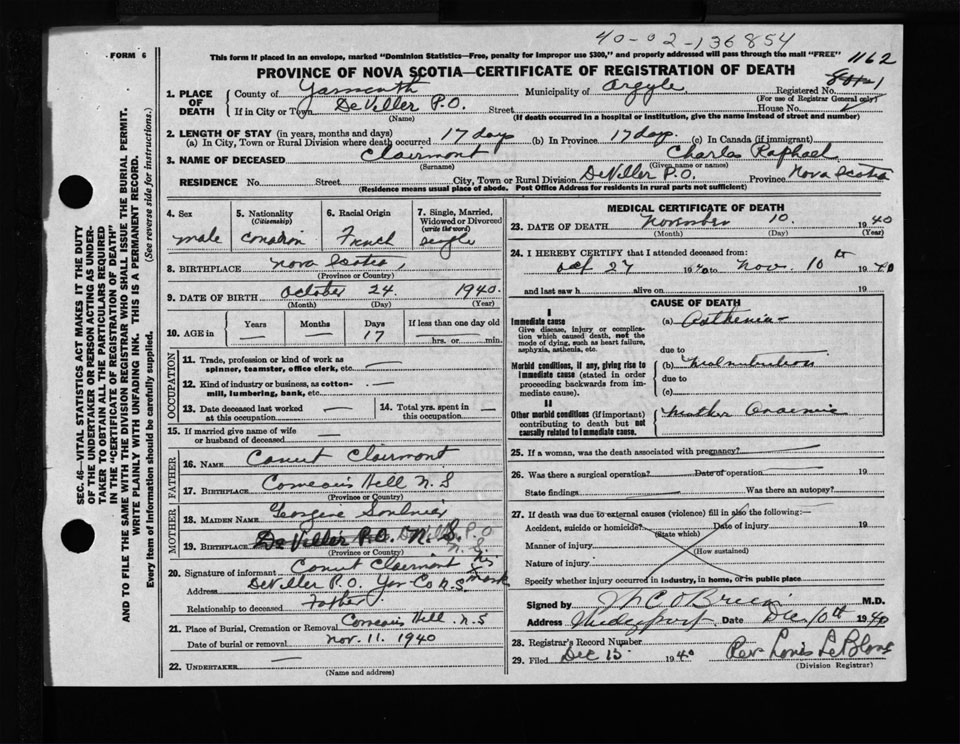 40-02-136854
FORM 6
This form if placed in an envelope, marked "Dominion Statistics—Free, penalty for improper use $300," and properly addressed will pass through the mail "FREE"
1162
PROVINCE OF NOVA SCOTIA—CERTIFICATE OF REGISTRATION OF DEATH
1. PLACE OF DEATH
County of Yarmouth Municipality of Argyle Registered No.
(For use of Registrar General only)
If in City or Town DeViller P.O. Street House No.
(Name) (If death occurred in a hospital or institution, give its name instead of street and number)
2. LENGTH OF STAY (in years, months and days)
(a) In City, Town or Rural Division where death occurred 17 days (b) In Province 17 days. (c) In Canada (if immigrant)
3. NAME OF DECEASED Clairmont Charles Raphael
(Surname) (Given name or names)
RESIDENCE No. Street City, Town or Rural Division DeViller P.O. Province Nova Scotia
(Residence means usual place of abode. Post Office Address for residents in rural parts not sufficient)
4. Sex
male
5. Nationality
(Citizenship)
6. Racial Origin
French
7. Single, Married, Widowed or Divorced
(write the word)
single
8. BIRTHPLACE Nova Scotia,
(Province or Country)
9. DATE OF BIRTH October 24. 1940.
(Month) (Day) (Year)
10. AGE in
Years Months Days If less than one day old
— — 17 — hrs. or — min.
OCCUPATION
11. Trade, profession or kind of work as
spinner, teamster, office clerk, etc. —
12. Kind of industry or business, as cotton-
mill, lumbering, bank, etc. —
13. Date deceased last worked
at this occupation —
14. Total yrs. spent in
this occupation —
15. If married give name of wife
or husband of deceased —
FATHER
16. NAME Conut Clairmont
17. BIRTHPLACE Comeau's Hill N.S
(Province or Country)
MOTHER
18. MAIDEN NAME Georgene Soulnier
19. BIRTHPLACE DeViller P.O. N.S.
(Province or Country)
20. Signature of informant Conut Clairmont his mark
Address DeViller P.O. Yar Co N.S
Relationship to deceased Father
21. Place of Burial, Cremation or Removal Comeau's Hill N.S
Date of burial or removal Nov. 11. 1940
22. UNDERTAKER —
(Name and address)
MEDICAL CERTIFICATE OF DEATH
23. DATE OF DEATH November 10. 1940
(Month) (Day) (Year)
24. I HEREBY CERTIFY that I attended deceased from:
Oct 27 1940 to Nov. 10th 1940
and last saw h alive on 19
CAUSE OF DEATH
I
Immediate cause
Give disease, injury or complication which caused death, not the mode of dying, such as heart failure, asphyxia, asthenia, etc.
(a) Asthenia
due to
Morbid conditions, if any, giving rise to immediate cause (stated in order proceeding backwards from immediate cause).
(b) Malnutrition
due to
(c)
II
Other morbid conditions (if important) contributing to death but not causally related to immediate cause.
Mother Anaemic
25. If a woman, was the death associated with pregnancy?
26. Was there a surgical operation? Date of operation 19
State findings Was there an autopsy?
27. If death was due to external causes (violence) fill in also the following:—
Accident, suicide or homicide? Date of injury 19
(State which)
Manner of injury
(How sustained)
Nature of injury
Specify whether injury occurred in industry, in home, or in public place
Signed by O'Brien M.D.
Address Date Dec 10th 1940
28. Registrar's Record Number
29. Filed Dec 13 1940 Rev Louis LeBlanc
(Division Registrar)
SEC. 46—VITAL STATISTICS ACT MAKES IT THE DUTY
OF THE UNDERTAKER OR PERSON ACTING AS UNDER-
TAKER TO OBTAIN ALL THE PARTICULARS REQUIRED
IN THE "CERTIFICATE OF REGISTRATION OF DEATH"
AND TO FILE THE SAME WITH THE DIVISION REGISTRAR WHO SHALL ISSUE THE BURIAL PERMIT.
WRITE PLAINLY WITH UNFADING INK. THIS IS A PERMANENT RECORD.
Every item of information should be carefully supplied. (See reverse side for instructions.)